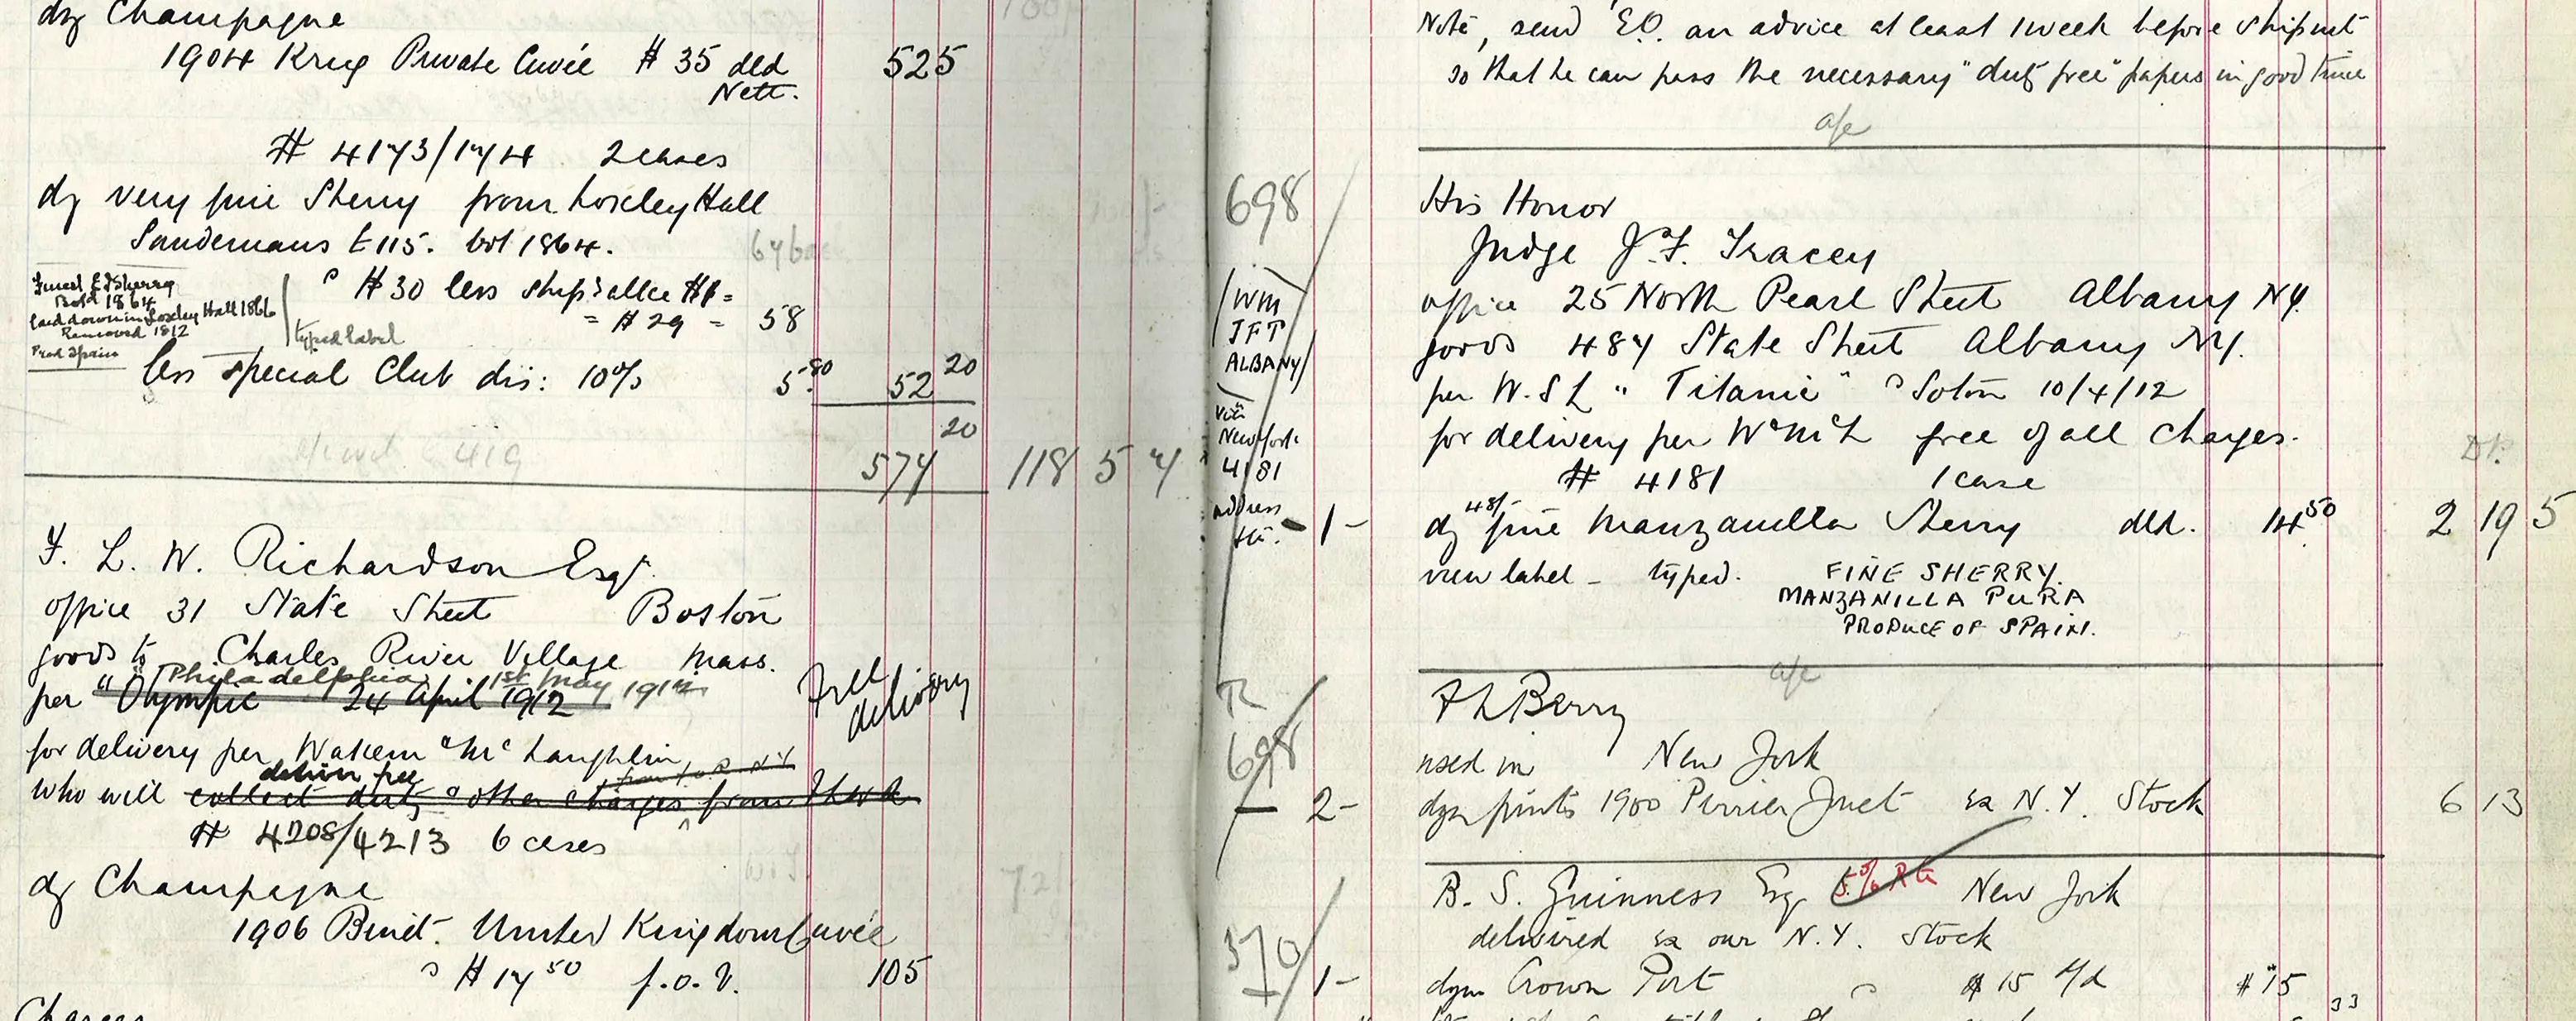 dz Champagne
1904 Krug Private Cuvée $ 35 dld 525
Nett.
# 4173/174 2 cases
dz very fine Sherry from Loxley Hall
Sandemans £115. bot 1864.
$30 less ship: allce $1 =
= $29 = 58
Finest Sherry
Bold 1864
laid down in Loxley Hall 1866
Removed 1812
Prod Spain
typed label
less special Club dis: 10% 5.80 52 20
20
574 118 5 7
F. L. W. Richardson Esq.
office 31 State Street Boston
goods to Charles River Village Mass.
"Philadelphia 1st May 1912
per "Olympic 24 April 1912
Free delivery
for delivery per Wakem & Mc Laughlin
deliver free
who will collect duty & other charges from
# 4208/4213 6 cases
dz Champagne
1906 Binet. United Kingdom Cuvée
$ 17 50 f.o.b. 105
Charges
Note, send E.O. an advice at least 1 week before shipmt
so that he can pass the necessary "duty free" papers in good time
698
His Honor
Judge J. F. Tracey
office 25 North Pearl Street Albany NY.
goods 487 State Street Albany NY.
per W.S.L "Titanic" Soton 10/4/12
for delivery per W & McL free of all charges.
# 4181 1 case
WM
JFT
ALBANY
via
New York
4181
address
1- dz 48/- fine Manzanilla Sherry dld. 14 50 2 19 5
view label - typed. FINE SHERRY.
MANZANILLA PURA
PRODUCE OF SPAIN.
698
F L Berry
used in New York
2- dzn pints 1900 Perrier Jouet ex N.Y. Stock 6 13
B. S. Guinness Esq 5% New York
delivered ex our N.Y. Stock
370
1- dzn Crown Port $ 15 $ 15
33